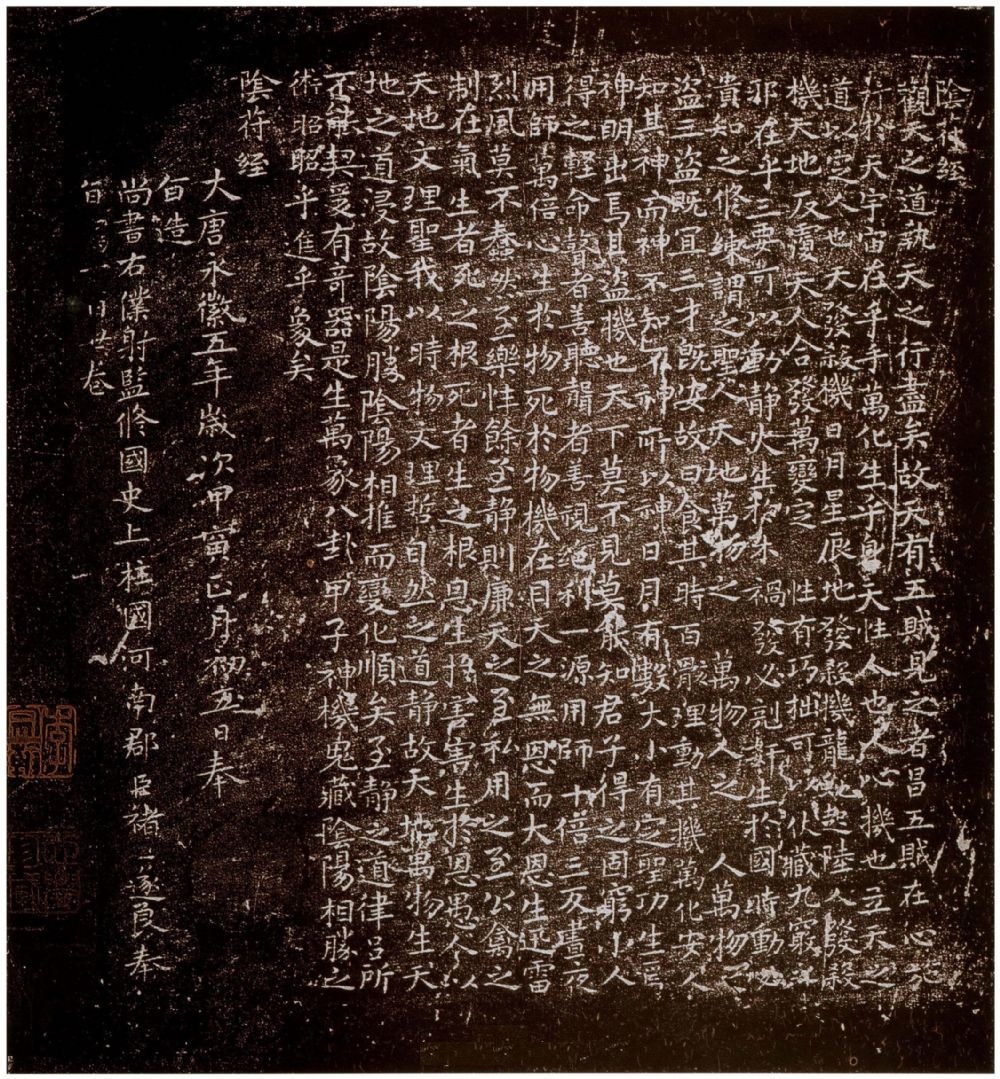 陰符經
觀天之道執天之行盡矣故天有五賊見之者昌五賊在心施
行於天宇宙在乎手萬化生乎身天性人也人心機也立天之
道以定人也天發殺機日月星辰地發殺機龍虵起陸人發殺
機天地反覆天人合發萬變定性有巧拙可以伏藏九竅之
邪在乎三要可以動静火生於木禍發必剋姧生於國時動必
潰知之修練謂之聖人天地萬物之萬物人之人萬物之
盗三盗既冝三才既安故曰食其時百骸理動其機萬化安人
知其神而神不知不神所以神日月有數大小有定聖功生焉
神明出焉其盗機也天下莫不見莫能知君子得之固窮小人
得之輕命瞽者善聽聾者善視絶利一源用師十倍三反晝夜
用師萬倍心生於物死於物機在目天之無恩而大恩生迅雷
烈風莫不蠢然至樂性餘至静則廉天之至私用之至公禽之
制在氣生者死之根死者生之根恩生於害害生於恩愚人以
天地文理聖我以時物文理哲自然之道静故天地萬物生天
地之道浸故陰陽勝陰陽相推而變化順矣至静之道律吕所
不能契爰有奇器是生萬象八卦甲子神機鬼藏陰陽相勝之
術昭昭乎進乎象矣
陰符經
大唐永徽五年歲次甲寅正月初五日奉
旨造
尚書右僕射監修國史上柱國河南郡臣褚遂良奉
旨一日卷